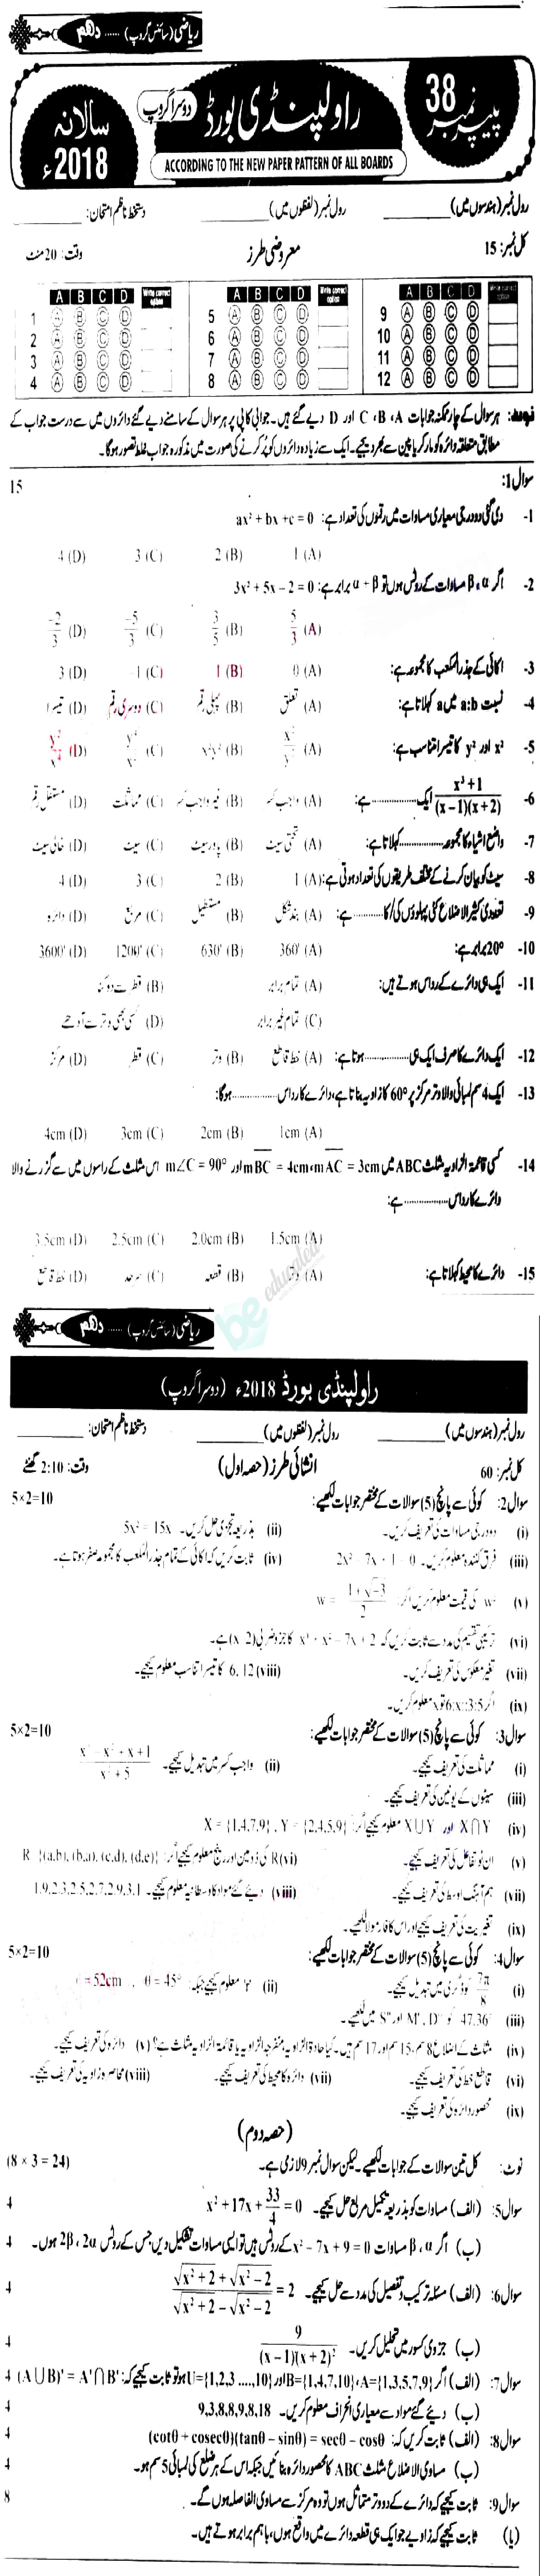 ریاضی (سائنس گروپ) ...... دہم
پیپر نمبر 38
راولپنڈی بورڈ
دوسرا گروپ
سالانہ 2018ء
ACCORDING TO THE NEW PAPER PATTERN OF ALL BOARDS
رول نمبر (ہندسوں میں) ________ رول نمبر (لفظوں میں) ________ دستخط ناظم امتحان: ________
کل نمبر: 15 معروضی طرز وقت: 20 منٹ
A B C D Write correct option A B C D Write correct option A B C D Write correct option
1 A B C D 5 A B C D 9 A B C D
2 A B C D 6 A B C D 10 A B C D
3 A B C D 7 A B C D 11 A B C D
4 A B C D 8 A B C D 12 A B C D
نوٹ: ہر سوال کے چار ممکنہ جوابات A، B، C اور D دیے گئے ہیں۔ جوابی کاپی پر ہر سوال کے سامنے دیے گئے دائروں میں سے درست جواب کے
مطابق متعلقہ دائرہ کو مارکر یا پین سے بھر دیجیے۔ ایک سے زیادہ دائروں کو پُر کرنے کی صورت میں مذکورہ جواب غلط تصور ہوگا۔
سوال 1: 15
1- دی گئی دو درجی معیاری مساوات میں رقموں کی تعداد ہے: ax² + bx + c = 0
(A) 1 (B) 2 (C) 3 (D) 4
2- اگر α، β مساوات کے روٹس ہوں تو α + β برابر ہے: 3x² + 5x − 2 = 0
(A) 5/3 (B) 3/5 (C) −5/3 (D) −2/3
3- اکائی کے جذر المکعب کا مجموعہ ہے: (A) 0 (B) 1 (C) -1 (D) 3
4- نسبت a:b میں a کہلاتا ہے: (A) تعلق (B) پہلی رقم (C) دوسری رقم (D) تیسرا
5- x² اور y² کا تیسرا تناسب ہے: (A) (B) x²y² (C) (D)
6- x³+1/(x−1)(x+2) ایک ............ ہے: (A) واجب کسر (B) غیر واجب کسر (C) مماثلت (D) مستقل رقم
7- واضح اشیاء کا مجموعہ ............ کہلاتا ہے: (A) تحتی سیٹ (B) پاور سیٹ (C) سیٹ (D) خالی سیٹ
8- سیٹ کو بیان کرنے کے مختلف طریقوں کی تعداد ہوتی ہے: (A) 1 (B) 2 (C) 3 (D) 4
9- تعددی کثیر الاضلاع کئی پہلوؤں کی/کا ............ ہے: (A) بند شکل (B) مستطیل (C) مربع (D) دائرہ
10- 20° برابر ہے: (A) 360' (B) 630' (C) 1200' (D) 3600'
11- ایک ہی دائرے کے رداس ہوتے ہیں: (A) تمام برابر (B) قطر سے دوگنا
(C) تمام غیر برابر (D) کسی بھی وتر سے آدھے
12- ایک دائرے کا صرف ایک ہی ............ ہوتا ہے: (A) خط قاطع (B) وتر (C) قطر (D) مرکز
13- ایک 4 سم لمبائی والا وتر مرکز پر 60° کا زاویہ بناتا ہے، دائرے کا رداس ............ ہوگا:
(A) 1cm (B) 2cm (C) 3cm (D) 4cm
14- کسی قائمۃ الزاویہ مثلث ABC میں mAC = 3cm، mBC = 4cm اور m∠C = 90° اس مثلث کے راسوں میں سے گزرنے والا
دائرے کا رداس ............ ہے:
(A) 1.5cm (B) 2.0cm (C) 2.5cm (D) 3.5cm
15- دائرے کا محیط کہلاتا ہے: (A) وتر (B) قطعہ (C) سرحد (D) خط قاطع
be educated
ریاضی (سائنس گروپ) ...... دہم
راولپنڈی بورڈ 2018ء (دوسرا گروپ)
رول نمبر (ہندسوں میں) ________ رول نمبر (لفظوں میں) ________ دستخط ناظم امتحان: ________
کل نمبر: 60 انشائی طرز (حصہ اول) وقت: 2:10 گھنٹے
سوال 2: کوئی سے پانچ (5) سوالات کے مختصر جوابات لکھیے: 5×2=10
(i) دو درجی مساوات کی تعریف کریں۔ (ii) بذریعہ تجزی حل کریں۔ 5x² = 15x
(iii) فرق کنندہ معلوم کریں۔ 2x² − 7x + 1 = 0 (iv) ثابت کریں کہ اکائی کے تمام جذر المکعب کا مجموعہ صفر ہوتا ہے۔
(v) w² کی قیمت معلوم کریں اگر: w = −1+√−3/2
(vi) ترکیبی تقسیم کی مدد سے ثابت کریں کہ x³ + x² − 7x + 2 کا جزو ضربی (x−2) ہے۔
(vii) تغیر معکوس کی تعریف کریں۔ (viii) 6، 12 کا تیسرا تناسب معلوم کیجیے۔
(ix) اگر 6:x::3:5 تو x معلوم کریں۔
سوال 3: کوئی سے پانچ (5) سوالات کے مختصر جوابات لکھیے: 5×2=10
(i) مماثلت کی تعریف کیجیے۔ (ii) واجب کسر میں تبدیل کیجیے۔ x³−x²+x+1/x²+5
(iii) سیٹوں کے یونین کی تعریف کیجیے۔
(iv) X∩Y اور X∪Y معلوم کیجیے اگر: X = {1,4,7,9} , Y = {2,4,5,9}
(v) اِن ٹو تفاعل کی تعریف کیجیے۔ (vi) R کی ڈومین اور رینج معلوم کیجیے اگر: R = {(a,b), (b,a), (c,d), (d,e)}
(vii) ہم آہنگ اوسط کی تعریف کیجیے۔ (viii) دیے گئے مواد کا وسطانیہ معلوم کیجیے۔ 1.9,2.3,2.5,2.7,2.9,3.1
(ix) تغیریت کی تعریف کیجیے اور اس کا فارمولا لکھیے۔
سوال 4: کوئی سے پانچ (5) سوالات کے مختصر جوابات لکھیے: 5×2=10
(i) 7π/8 کو ڈگری میں تبدیل کیجیے۔ (ii) 'r' معلوم کیجیے جبکہ: θ = 45° , l = 52cm
(iii) 47.36° کو D°، M' اور S" میں لکھیے۔
(iv) مثلث کے اضلاع 8 سم، 15 سم اور 17 سم ہیں۔ کیا حادۃ الزاویہ منفرجہ الزاویہ یا قائمۃ الزاویہ مثلث ہے؟ (v) دائرہ کی تعریف کیجیے۔
(vi) قاطع خط کی تعریف کیجیے۔ (vii) دائرہ کا محیط کی تعریف کیجیے۔ (viii) محاصرہ زاویہ کی تعریف کیجیے۔
(ix) محصور دائرہ کی تعریف کیجیے۔
(حصہ دوم)
نوٹ: کل تین سوالات کے جوابات لکھیے۔ لیکن سوال نمبر 9 لازمی ہے۔ (8 × 3 = 24)
سوال 5: (الف) مساوات کو بذریعہ تکمیل مربع حل کیجیے۔ x² + 17x + 33/4 = 0 4
(ب) اگر α، β مساوات x² − 7x + 9 = 0 کے روٹس ہیں تو ایسی مساوات تشکیل دیں جس کے روٹس 2α، 2β ہوں۔ 4
سوال 6: (الف) مسئلہ ترکیب و تفصیل کی مدد سے حل کیجیے۔ √x²+2 + √x²−2 / √x²+2 − √x²−2 = 2 4
(ب) جزوی کسور میں تحلیل کریں۔ 9/(x−1)(x+2)² 4
سوال 7: (الف) اگر A={1,3,5,7,9}، B={1,4,7,10} اور U={1,2,3 ....,10} ہو تو ثابت کیجیے کہ: (A∪B)' = A'∩B' 4
(ب) دیے گئے مواد سے معیاری انحراف معلوم کریں۔ 9,3,8,8,9,8,9,18 4
سوال 8: (الف) ثابت کریں کہ: (cotθ + cosecθ)(tanθ − sinθ) = secθ − cosθ 4
(ب) مساوی الاضلاع مثلث ABC کا محصور دائرہ بنائیں جبکہ اس کے ہر ضلع کی لمبائی 5 سم ہو۔ 4
سوال 9: ثابت کیجیے کہ دائرے کے دو وتر متماثل ہوں تو وہ مرکز سے مساوی الفاصلہ ہوں گے۔ 8
(یا) ثابت کیجیے کہ زاویے جو ایک ہی قطعہ دائرے میں واقع ہوں، باہم برابر ہوتے ہیں۔